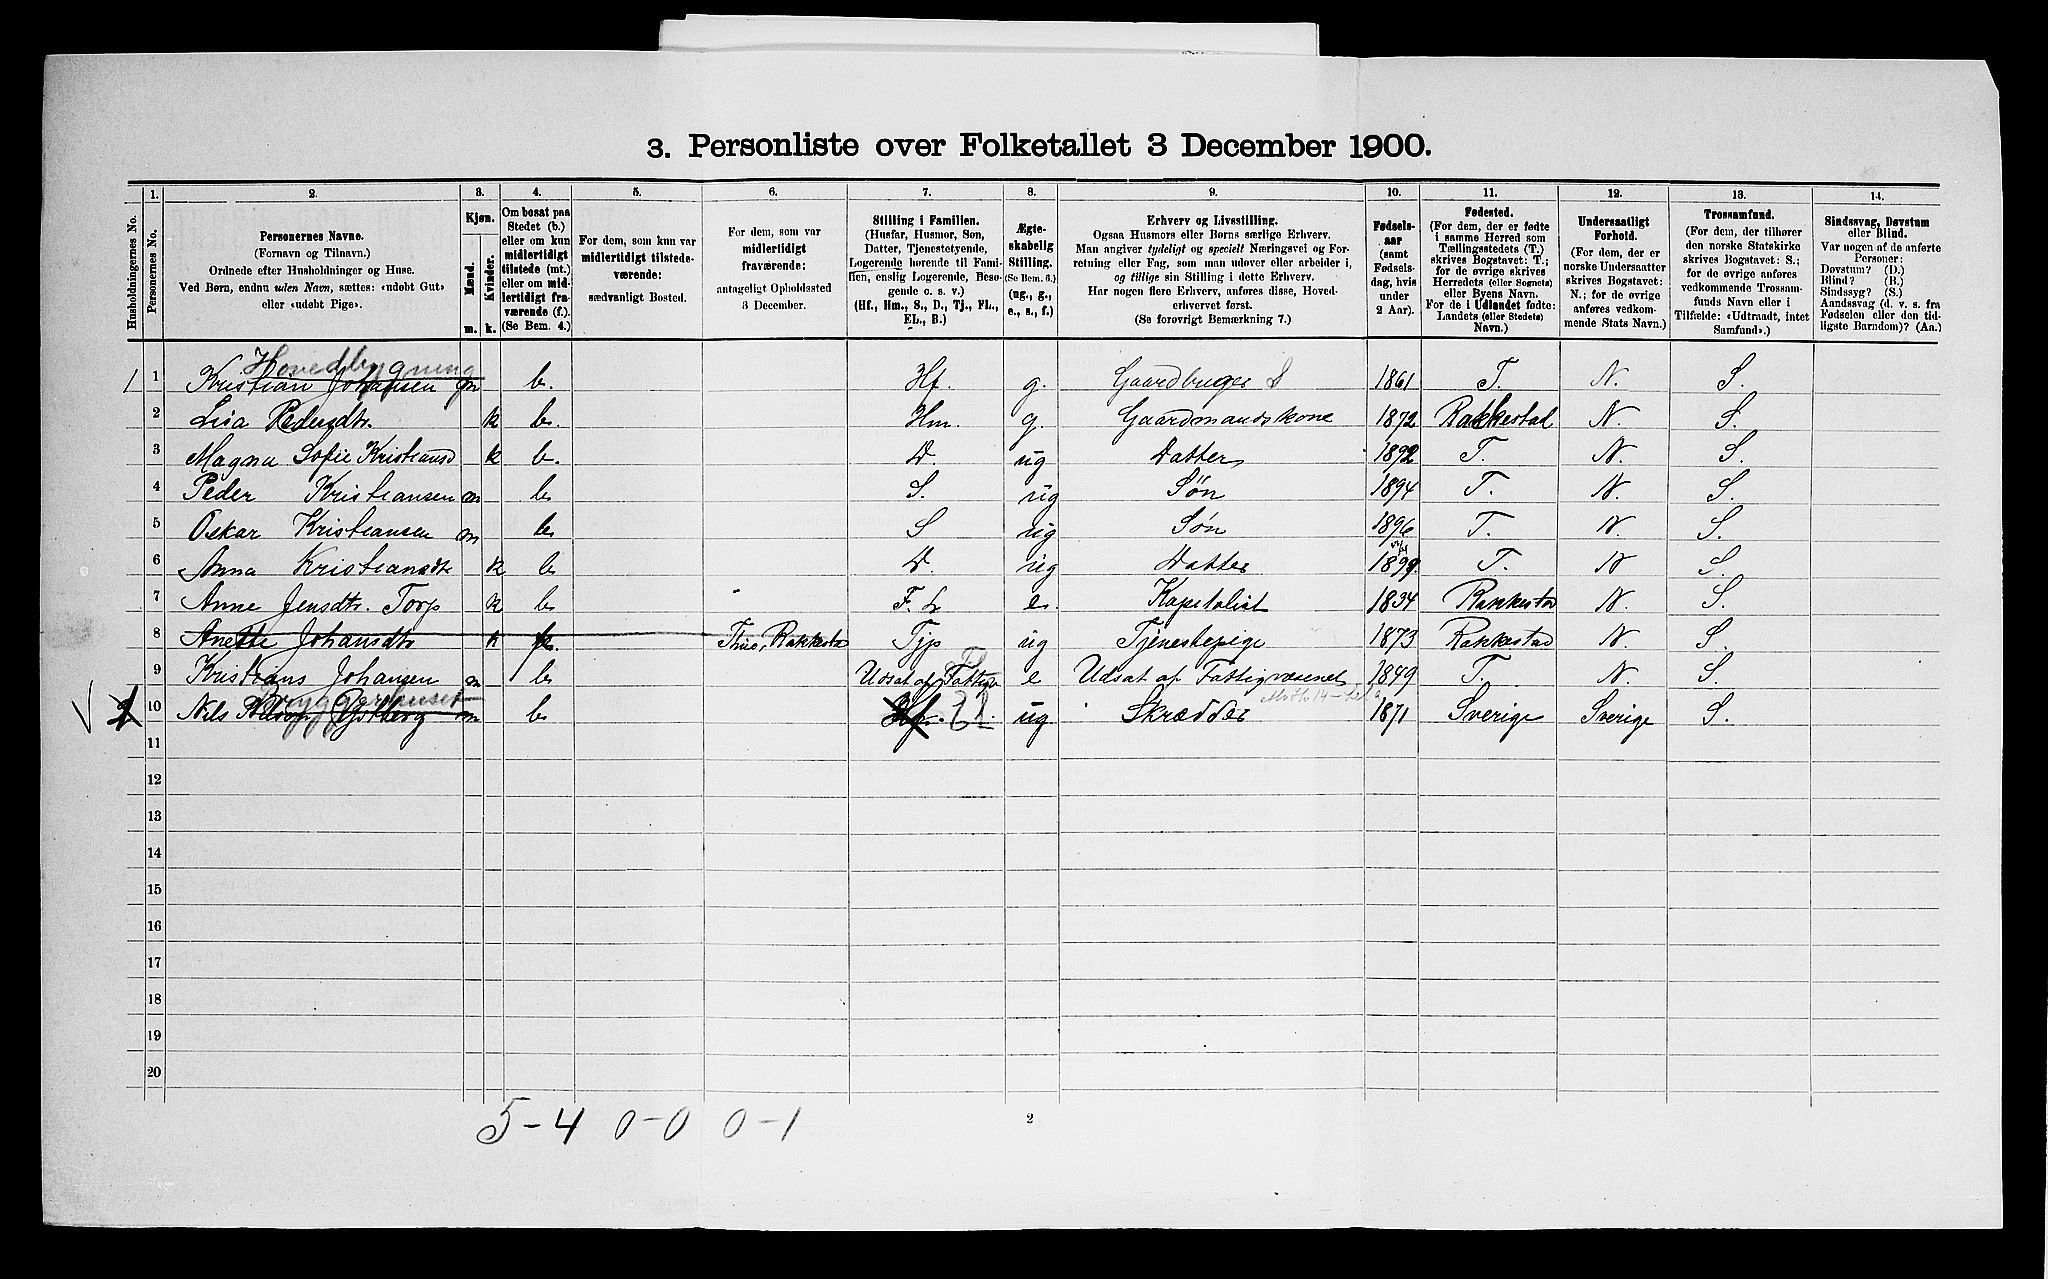 3. Personliste over Folketallet 3 December 1900.
1. 2. 3. 4. 5. 6. 7. 8. 9. 10. 11. 12. 13. 14.
Husholdningernes No.
Personernes No.
Personernes Navne.
(Fornavn og Tilnavn.)
Ordnede efter Husholdninger og Huse.
Ved Børn, endnu uden Navn, sættes: «udøbt Gut»
eller «udøbt Pige».
Kjøn.
Mænd.
Kvinder.
m. k.
Om bosat paa
Stedet (b.)
eller om kun
midlertidigt
tilstede (mt.)
eller om mid-
lertidigt fra-
værende (f.).
(Se Bem. 4.)
For dem, som kun var
midlertidigt tilstede-
værende:
sædvanligt Bosted.
For dem, som var
midlertidigt
fraværende:
antageligt Opholdssted
3 December.
Stilling i Familien.
(Husfar, Husmor, Søn,
Datter, Tjenestetyende,
Logerende hørende til Fami-
lien, enslig Logerende, Besø-
gende o. s. v.)
(Hf., Hm., S., D., Tj., FL.,
EL., B.)
Ægte-
skabelig
Stilling.
(Se Bem. 6.)
(ug., g.,
e., s., f.)
Erhverv og Livsstilling.
Ogsaa Husmors eller Børns særlige Erhverv.
Man angiver tydeligt og specielt Næringsvei og For-
retning eller Fag, som man udøver eller arbeider i,
og tillige sin Stilling i dette Erhverv.
Har nogen flere Erhverv, anføres disse, Hoved-
erhvervet først.
(Se forøvrigt Bemærkning 7.)
Fødsels-
aar
(samt
Fødsels-
dag, hvis
under
2 Aar).
Fødested.
(For dem, der er fødte
i samme Herred som
Tællingsstedets (T.)
skrives Bogstavet: T.;
for de øvrige skrives
Herredets (eller Sognets)
eller Byens Navn.
For de i Udlandet fødte:
Landets (eller Stedets)
Navn.)
Undersaatligt
Forhold.
(For dem, der er
norske Undersaatter
skrives Bogstavet:
N.; for de øvrige
anføres vedkom-
mende Stats Navn.)
Trossamfund.
(For dem, der tilhører
den norske Statskirke
skrives Bogstavet: S.;
for de øvrige anføres
vedkommende Trossam-
funds Navn eller i
Tilfælde: «Udtraadt, intet
Samfund».)
Sindssvag, Døvstum
eller Blind.
Var nogen af de anførte
Personer:
Døvstum? (D.)
Blind? (B.)
Sindssyg? (S.)
Aandssvag (d. v. s. fra
Fødselen eller den tid-
ligste Barndom)? (Aa.)
Hovedbygning
1 1 Kristian Johansen m b. Hf. g. Gaardbruger S 1861 T. N. S.
2 Lisa Pedersdtr. k b. Hm. g. Gaardmandskone 1872 Rakkestad N. S.
3 Magna Sofie Kristiansd k b. D. ug Datter 1892 T. N. S.
4 Peder Kristiansen m b S. ug Søn 1894 T. N. S.
5 Oskar Kristiansen m b S ug Søn 1896 T. N. S.
6 Anna Kristiansdtr k b D. ug Datter 1899. T. N S
7 Anne Jensdtr. Torp k b F. L e. Kapitalist 1834 Rakkestad N. S.
8 Anette Johansdtr k Rakkestad Tjp ug Tjenestepige 1873 Rakkestad N. S.
9 Kristians Johansen m b Udsat af Fattigv e Udsat af Fattigvæsenet 1849 T. N. S.
Bryggerhuset
2 10 Nils m b Hf. El. ug Skrædder 1871 Sverige Sverige S.
11
12
13
14
15
16
17
18
19
20
5-4 0-0 0-1
2